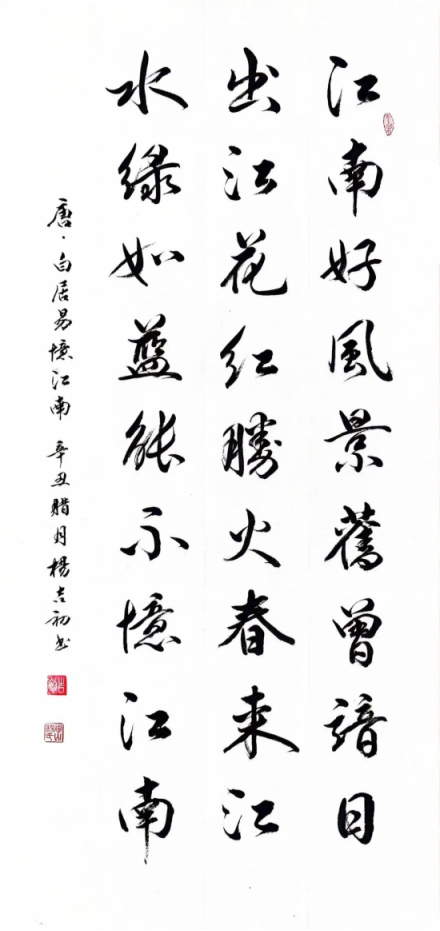 江南好風景舊曾諳日
出江花紅勝火春来江
水緑如藍能不憶江南
唐·白居易憶江南 辛丑腊月楊吉初书